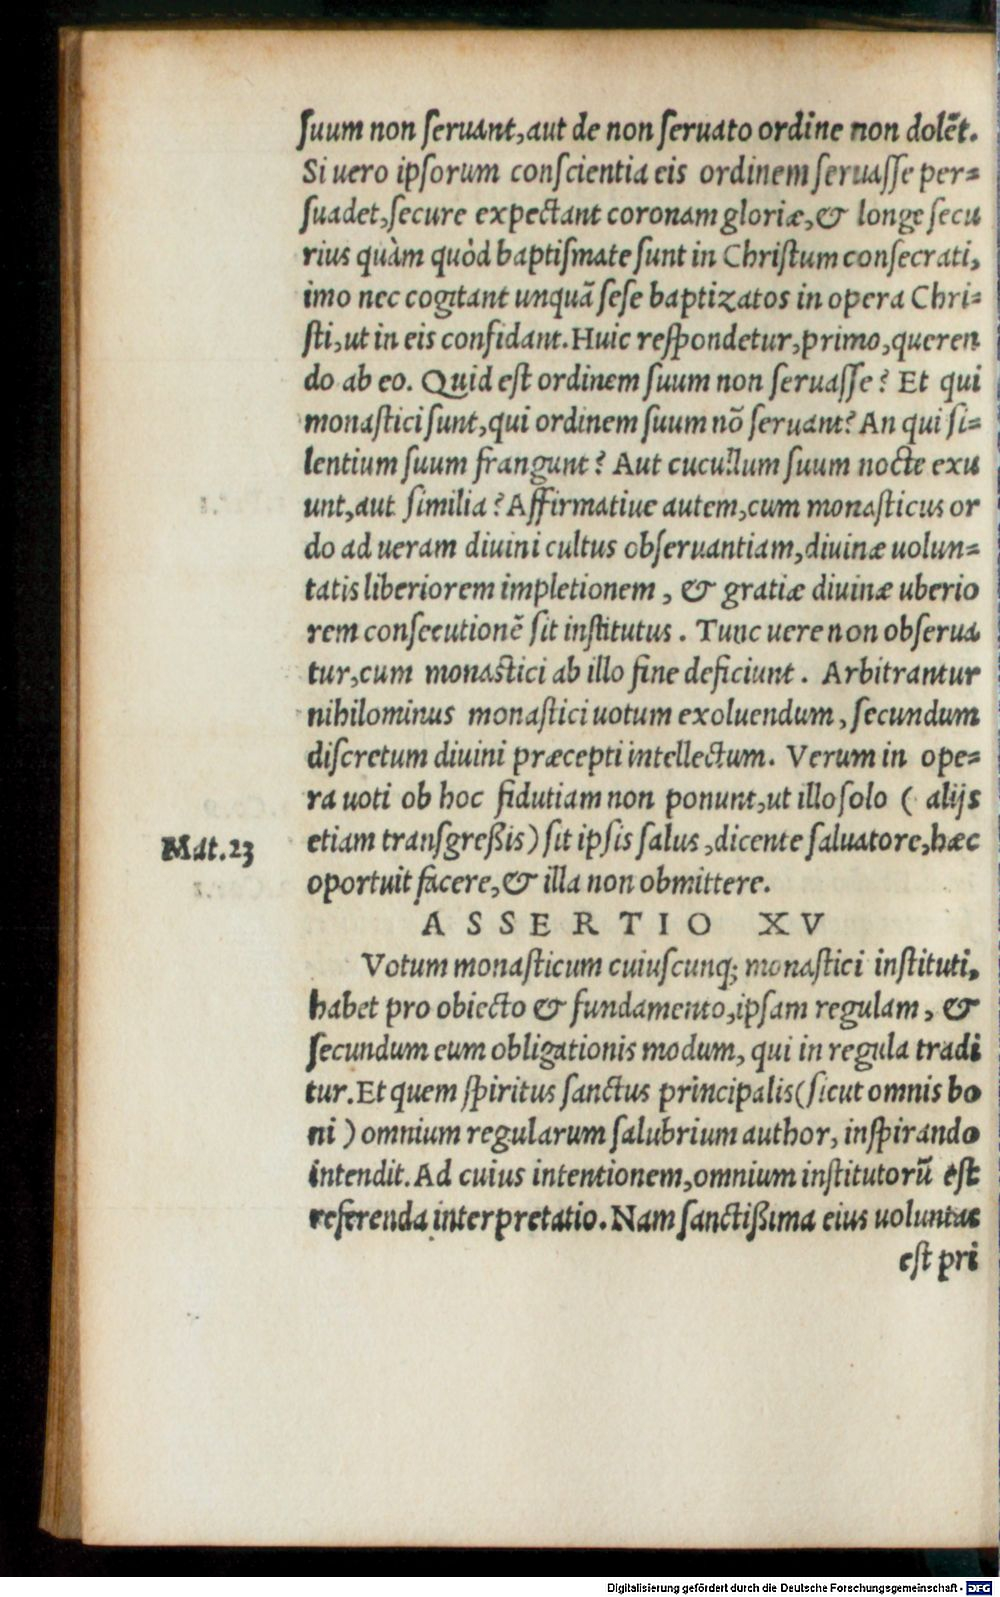 suum non seruant, aut de non seruato ordine non dolẽt.
Si uero ipsorum conscientia eis ordinem seruasse per=
suadet, secure expectant coronam gloriæ, & longe secu
rius quàm quòd baptismate sunt in Christum consecrati,
imo nec cogitant unquã sese baptizatos in opera Chri=
sti, ut in eis confidant. Huic respondetur, primo, queren
do ab eo. Quid est ordinem suum non seruasse? Et qui
monastici sunt, qui ordinem suum nõ seruant? An qui si=
lentium suum frangunt? Aut cucullum suum nocte exu
unt, aut similia? Affirmatiue autem, cum monasticus or
do ad ueram diuini cultus obseruantiam, diuinæ uolun=
tatis liberiorem impletionem, & gratiæ diuinæ uberio
rem consecutionẽ sit institutus. Tunc uere non obserua
tur, cum monastici ab illo fine deficiunt. Arbitrantur
nihilominus monastici uotum exoluendum, secundum
discretum diuini præcepti intellectum. Verum in ope=
ra uoti ob hoc fidutiam non ponunt, ut illo solo ( alijs
Mat. 23
etiam transgreßis) sit ipsis salus, dicente saluatore, hæc
oportuit facere, & illa non obmittere.
ASSERTIO XV
Votum monasticum cuiuscunq; monastici instituti,
habet pro obiecto & fundamento, ipsam regulam, &
secundum eum obligationis modum, qui in regula tradi
tur. Et quem spiritus sanctus principalis (sicut omnis bo
ni ) omnium regularum salubrium author, inspirando
intendit. Ad cuius intentionem, omnium institutorũ est
referenda interpretatio. Nam sanctißima eius uoluntas
est pri
Digitalisierung gefördert durch die Deutsche Forschungsgemeinschaft - DFG